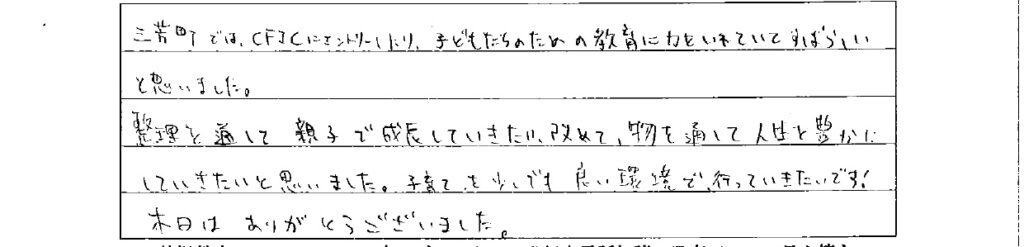 三芳町では、CFJCにエントリーしたり、子どもたちのための教育に力をいれていてすばらしい
と思いました。
整理を通して 親子で成長していきたい、改めて、物を通して人生を豊かに
していきたいと思いました。子育てを少しでも良い環境で、行っていきたいです!
本日は ありがとうございました。